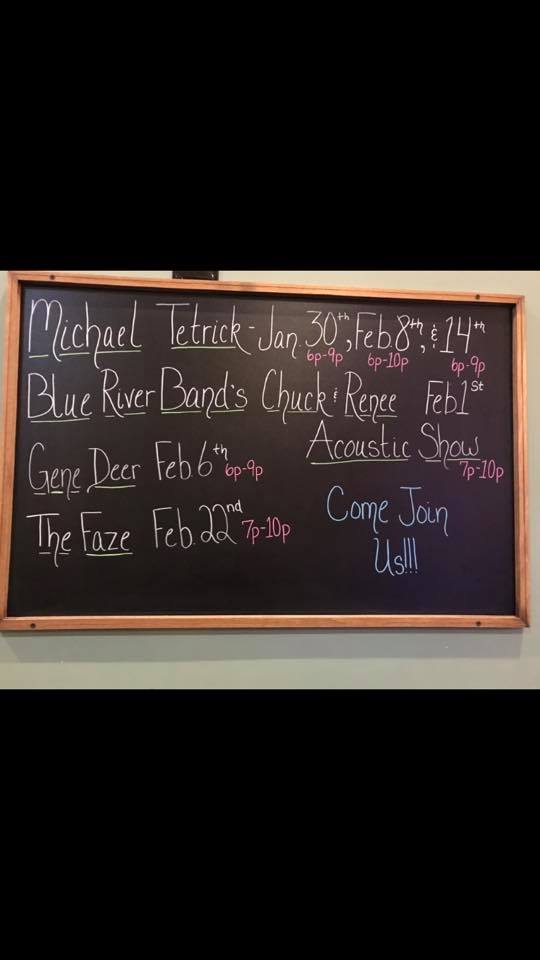 Michael Tetrick - Jan. 30th, Feb. 8th, & 14th
6p-9p 6p-10p 6p-9p
Blue River Band's Chuck & Renee Feb 1st
Acoustic Show
7p-10p
Gene Deer Feb. 6th 6p-9p
The Faze Feb. 22nd 7p-10p
Come Join
Us!!!